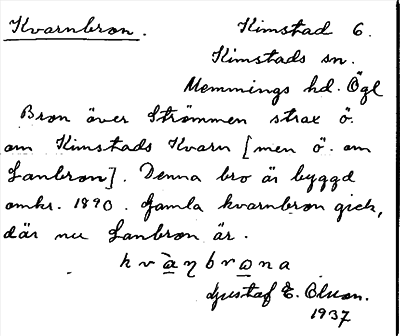 Kvarnbron.
Kimstad 6.
Kimstads sn.
Memmings hd. Ögl
Bron över Strömmen strax ö.
om Kimstads Kvarn [men ö. om
Lanbron]. Denna bro är byggd
omkr. 1890. Gamla kvarnbron gick,
där nu Lanbron är.
kvàŋbrona
Gustaf E. Olson.
1937